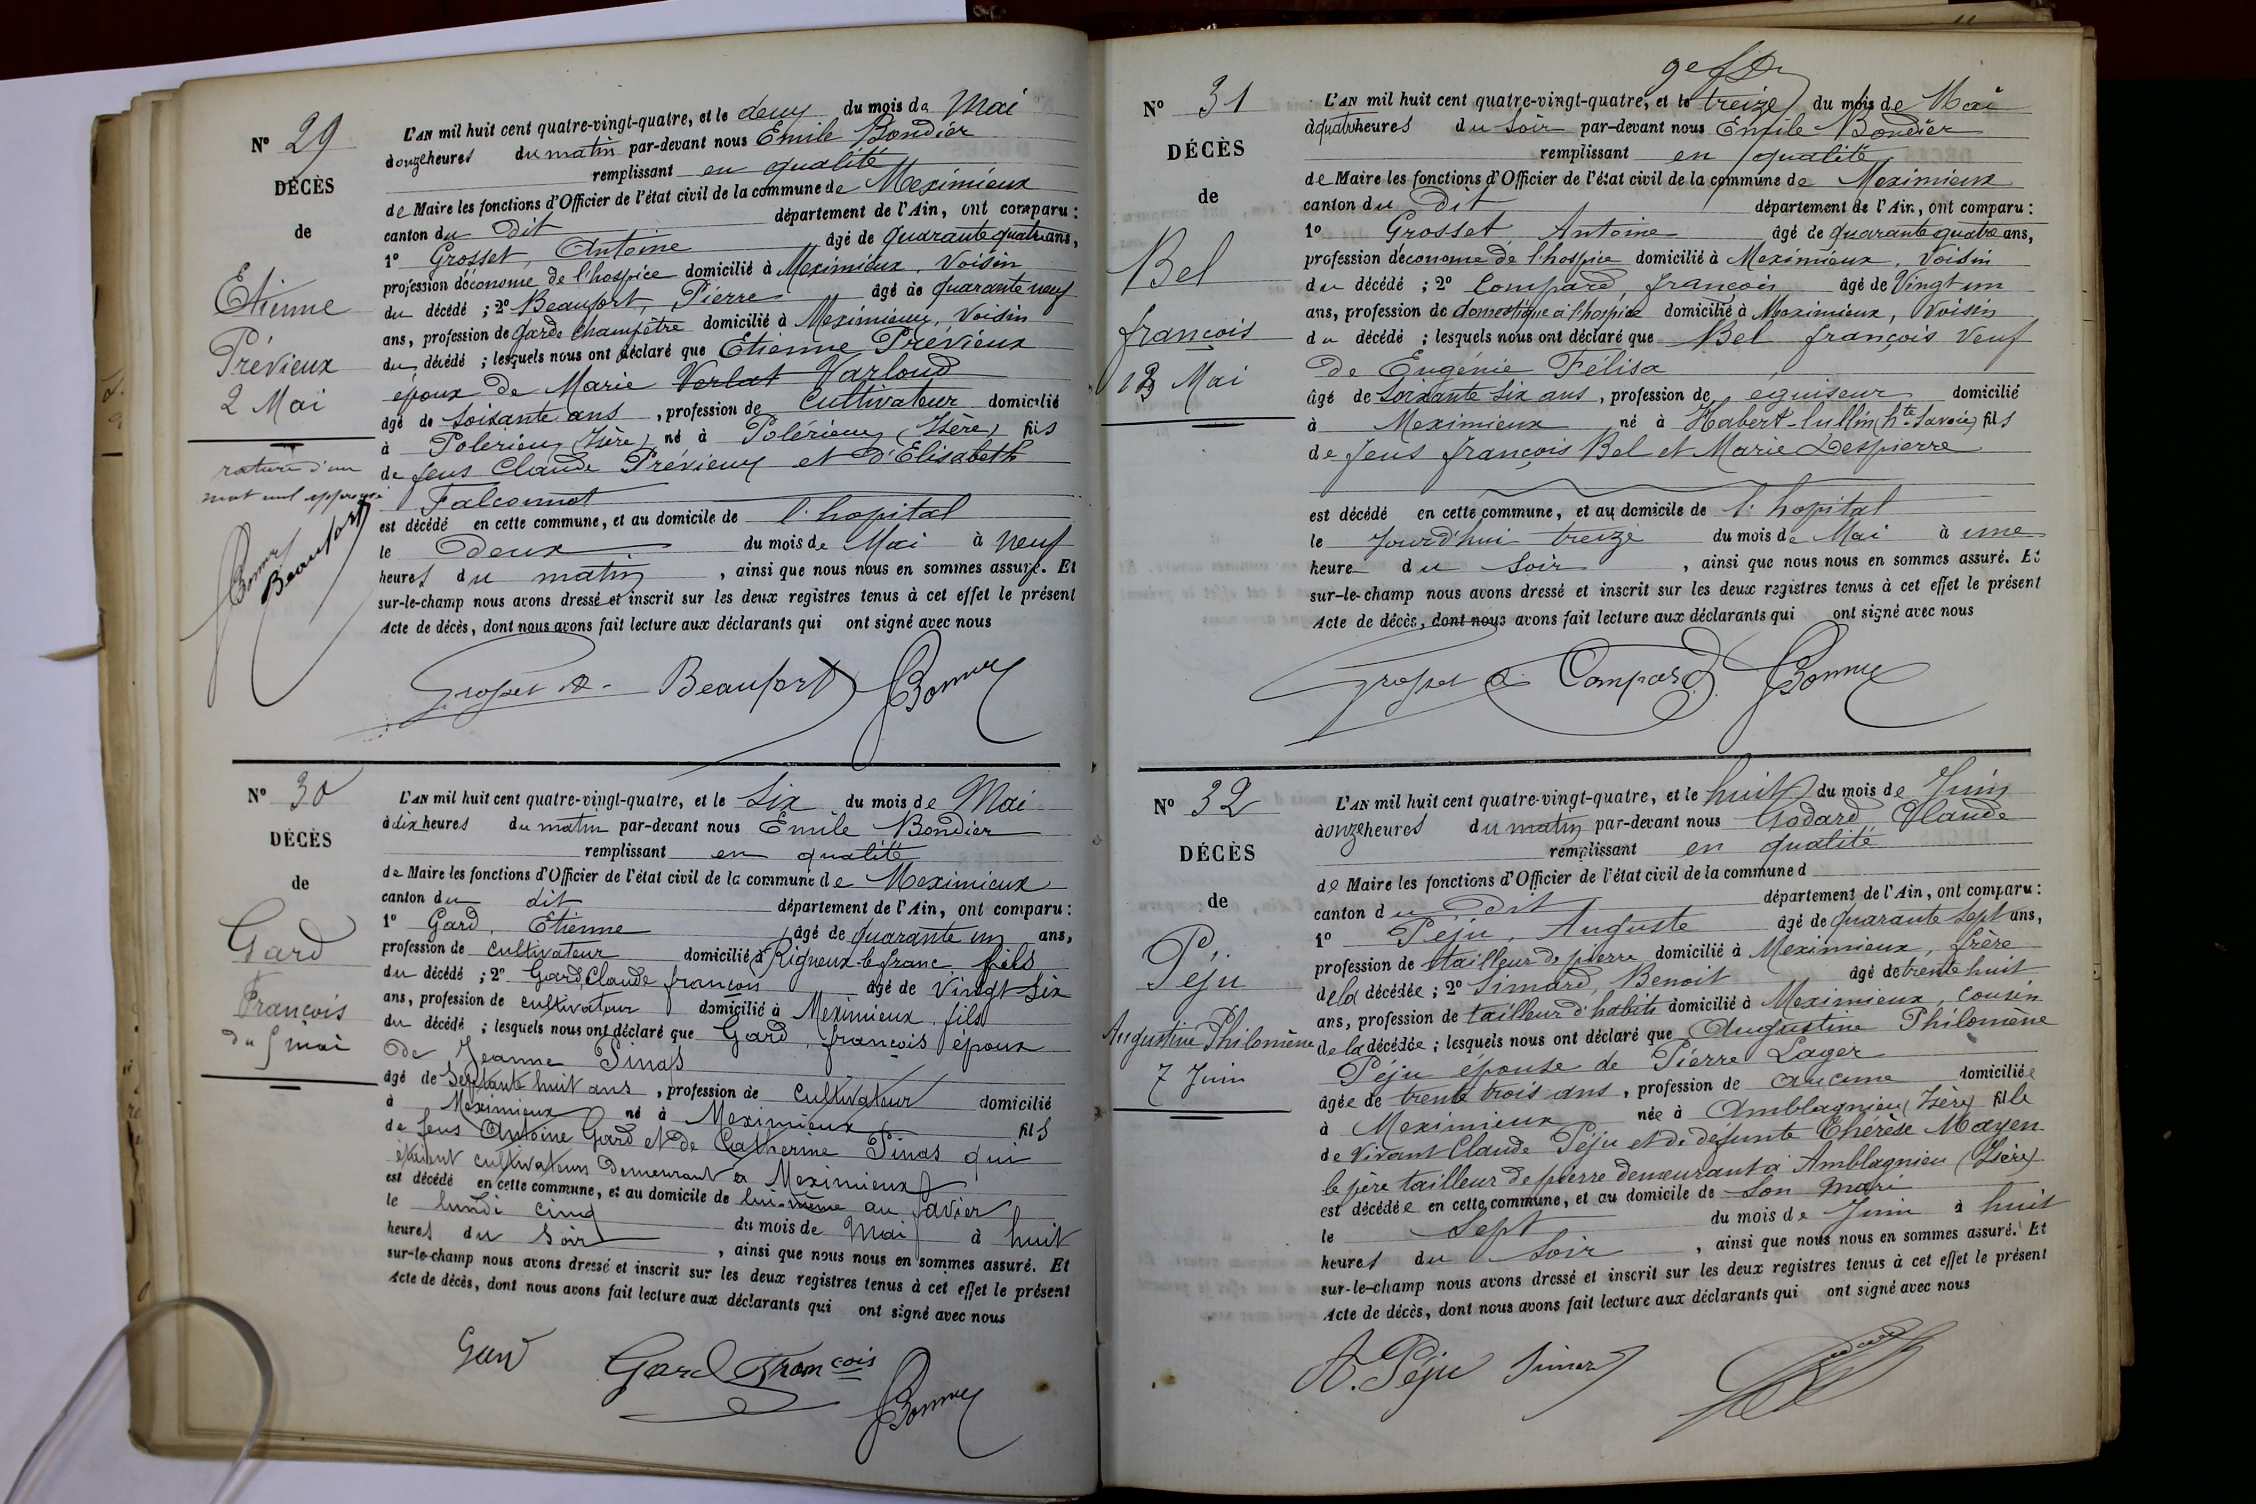 N° 29
DÉCÈS
de
Etienne
Prévieux
2 Mai
rature d'un
mot nul approuvé
Beaufort
L'AN mil huit cent quatre-vingt-quatre, et le deux du mois de Mai
à onze heures du matin par-devant nous Emile Bondier
remplissant en qualité
de Maire les fonctions d'Officier de l'état civil de la commune de Meximieux
canton du Dit département de l'Ain, ont comparu :
1° Grosset, Antoine âgé de quarante quatre ans,
profession d'économe de l'hospice domicilié à Meximieux, Voisin
du décédé ; 2° Beaufort, Pierre âgé de quarante neuf
ans, profession de garde champêtre domicilié à Meximieux, Voisin
du décédé ; lesquels nous ont déclaré que Etienne Prévieux
époux de Marie Verlat Varloud
âgé de soixante ans, profession de cultivateur domicilié
à Polerieu (Isère) né à Polérieu (Isère) fils
de feus Claude Prévieux et d'Elisabeth
Falconnot
est décédé en cette commune, et au domicile de l'hopital
le Deux du mois de Mai à neuf
heures du matin, ainsi que nous nous en sommes assuré. Et
sur-le-champ nous avons dressé et inscrit sur les deux registres tenus à cet effet le présent
Acte de décès, dont nous avons fait lecture aux déclarants qui ont signé avec nous
Grosset A. Beaufort
N° 30
DÉCÈS
de
Gard
François
du 5 mai
L'AN mil huit cent quatre-vingt-quatre, et le Six du mois de Mai
à dix heures du matin par-devant nous Emile Bondier
remplissant en qualité
de Maire les fonctions d'Officier de l'état civil de la commune de Meximieux
canton du dit département de l'Ain, ont comparu :
1° Gard, Etienne âgé de quarante un ans,
profession de cultivateur domicilié à Rigneux-le-franc fils
du décédé ; 2° Gard Claude françois âgé de Vingt six
ans, profession de cultivateur domicilié à Meximieux, fils
du décédé ; lesquels nous ont déclaré que Gard, françois époux
de Jeanne Pinas
âgé de septante huit ans, profession de cultivateur domicilié
à Meximieux né à Meximieux fils
de feus Antoine Gard et de Catherine Pinas qui
étaient cultivateurs demeurant à Meximieux
est décédé en cette commune, et au domicile de lui-même au favier
le lundi cinq du mois de Mai à huit
heures du Soir, ainsi que nous nous en sommes assuré. Et
sur-le-champ nous avons dressé et inscrit sur les deux registres tenus à cet effet le présent
Acte de décès, dont nous avons fait lecture aux déclarants qui ont signé avec nous
Gard Gard François
N° 31
DÉCÈS
de
Bel
françois
13 Mai
L'AN mil huit cent quatre-vingt-quatre, et le treize du mois de Mai
à quatre heures du soir par-devant nous Emile Bondier
remplissant en qualité
de Maire les fonctions d'Officier de l'état civil de la commune de Meximieux
canton du Dit département de l'Ain, ont comparu :
1° Grosset Antoine âgé de quarante quatre ans,
profession d'économe de l'hospice domicilié à Meximieux, Voisin
du décédé ; 2° Compard, françois âgé de Vingt un
ans, profession de domestique à l'hospice domicilié à Meximieux, Voisin
du décédé ; lesquels nous ont déclaré que Bel françois Veuf
de Eugénie Félisa
âgé de soixante six ans, profession de éguiseur domicilié
à Meximieux né à Habert-lullin (hte Savoie) fils
de feus françois Bel et Marie Despierre
est décédé en cette commune, et au domicile de l'hopital
le jourd'hui treize du mois de Mai à une
heure du soir, ainsi que nous nous en sommes assuré. Et
sur-le-champ nous avons dressé et inscrit sur les deux registres tenus à cet effet le présent
Acte de décès, dont nous avons fait lecture aux déclarants qui ont signé avec nous
Grosset A. Compard
N° 32
DÉCÈS
de
Péju
Augustine Philomène
7 Juin
L'AN mil huit cent quatre-vingt-quatre, et le huit du mois de Juin
à onze heures du matin par-devant nous Godard Claude
remplissant en qualité
de Maire les fonctions d'Officier de l'état civil de la commune d
canton du Dit département de l'Ain, ont comparu :
1° Péju, Auguste âgé de quarante sept ans,
profession de tailleur de pierre domicilié à Meximieux, frère
de la décédée ; 2° Simard, Benoit âgé de trente huit
ans, profession de tailleur d'habits domicilié à Meximieux, cousin
de la décédée ; lesquels nous ont déclaré que Augustine Philomène
Péju épouse de Pierre Lager
âgée de trente trois ans, profession de aucune domiciliée
à Meximieux née à Amblagnieu (Isère) fille
de Vivant Claude Péju et de défunte Thérèse Mayen
le père tailleur de pierre demeurant à Amblagnieu (Isère)
est décédée en cette commune, et au domicile de son mari
le Sept du mois de Juin à huit
heures du soir, ainsi que nous nous en sommes assuré. Et
sur-le-champ nous avons dressé et inscrit sur les deux registres tenus à cet effet le présent
Acte de décès, dont nous avons fait lecture aux déclarants qui ont signé avec nous
A. Péju Simard